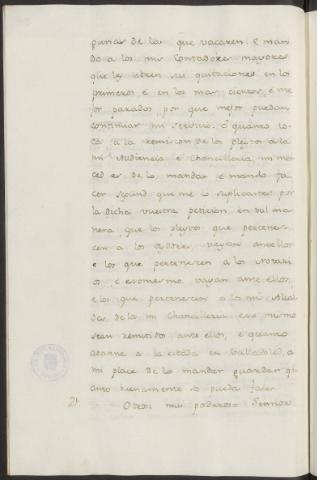 punas de la que vacaren. E man
do a los mis Contadores mayores
que les libren sus quitaciones en los
primeros e en los mas ciertos, e me
jor parados, por que mejor puedan
continuar mi servicio. E quanto to
ca a la remision de los pleytos a la
mi Audiencia e Chancilleria, mi mer
ced es de lo mandar e mando fa
cer segund que me lo suplicastes por
la dicha vuestra peticion, en tal ma
nera, que los pleytos que pertenes
cen a los oydores, vayan ante ellos
e los que pertenescen a los Notari
os, e eso mesmo vayan ante ellos,
e los que pertenescen a los mis Alcal
des de la mi Chancilleria eso mismo
sean remitidos ante ellos, e quanto
atanne a la estada en Valladolid, a
mi place de lo mandar guardar qu
anto buenamente se pueda facer.
21. Otrosi mui poderoso Sennor